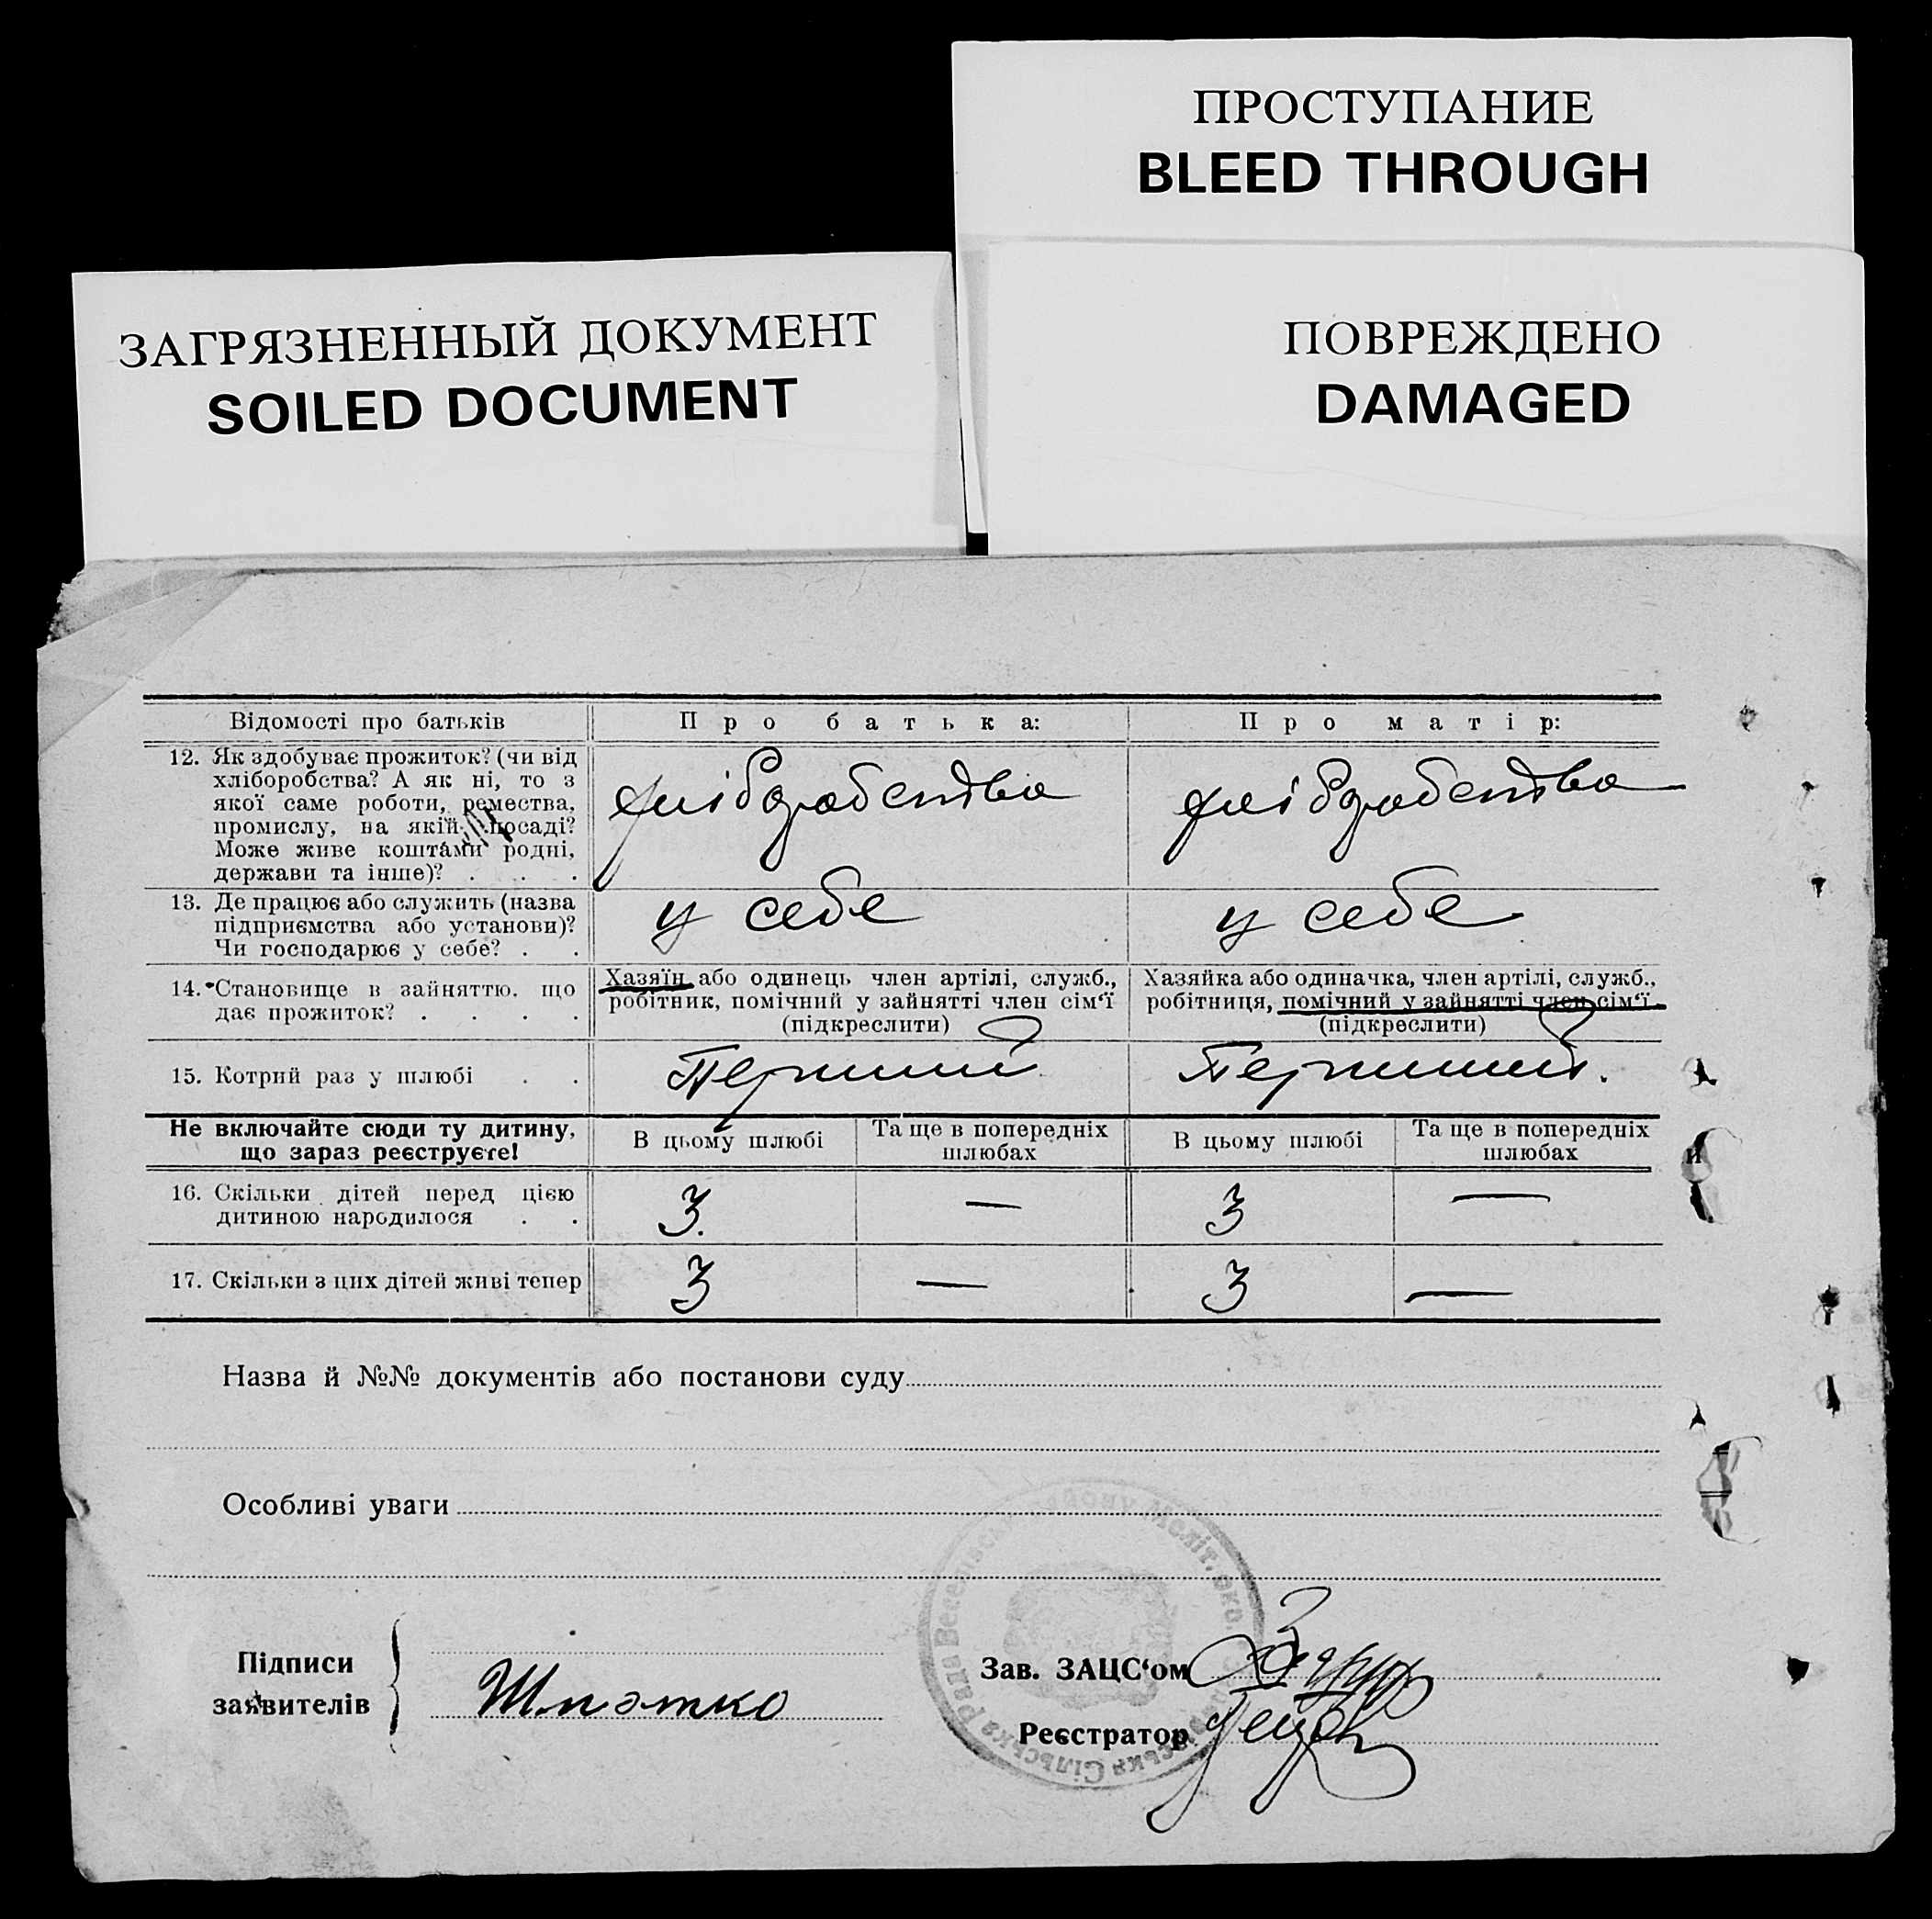 ПРОСТУПАНИЕ
BLEED THROUGH
ЗАГРЯЗНЕННЫЙ ДОКУМЕНТ
SOILED DOCUMENT
ПОВРЕЖДЕНО
DAMAGED
Відомості про батьків
Про батька:
Про матір:
12. Як здобуває прожиток? (чи від
хліборобства? А як ні, то з
якої саме роботи, ремества,
промислу, на якій посаді?
Може живе коштами родні,
держави та інше)? . . .
хліборобство
хліборобство
13. Де працює або служить (назва
підприємства або установи)?
Чи господарює у себе? . .
у себе
у себе
14. Становище в зайняттю, що
дає прожиток? . . . .
Хазяїн або одинець член артілі, служб.,
робітник, помічний у зайнятті член сім'ї
(підкреслити)
Хазяйка або одиначка, член артілі, служб.,
робітниця, помічний у зайнятті член сім'ї
(підкреслити)
15. Котрий раз у шлюбі . .
Перший
Перший.
Не включайте сюди ту дитину,
що зараз реєструєте!
В цьому шлюбі
Та ще в попередніх
шлюбах
В цьому шлюбі
Та ще в попередніх
шлюбах
16. Скільки дітей перед цією
дитиною народилося . .
3.
—
3
—
17. Скільки з цих дітей живі тепер
3
—
3
—
Назва й №№ документів або постанови суду
Особливі уваги
Підписи
заявителів
Шпэтко
Зав. ЗАЦС'ом
Реєстратор
Сільська Рада Весельськ району Меліт. окр.